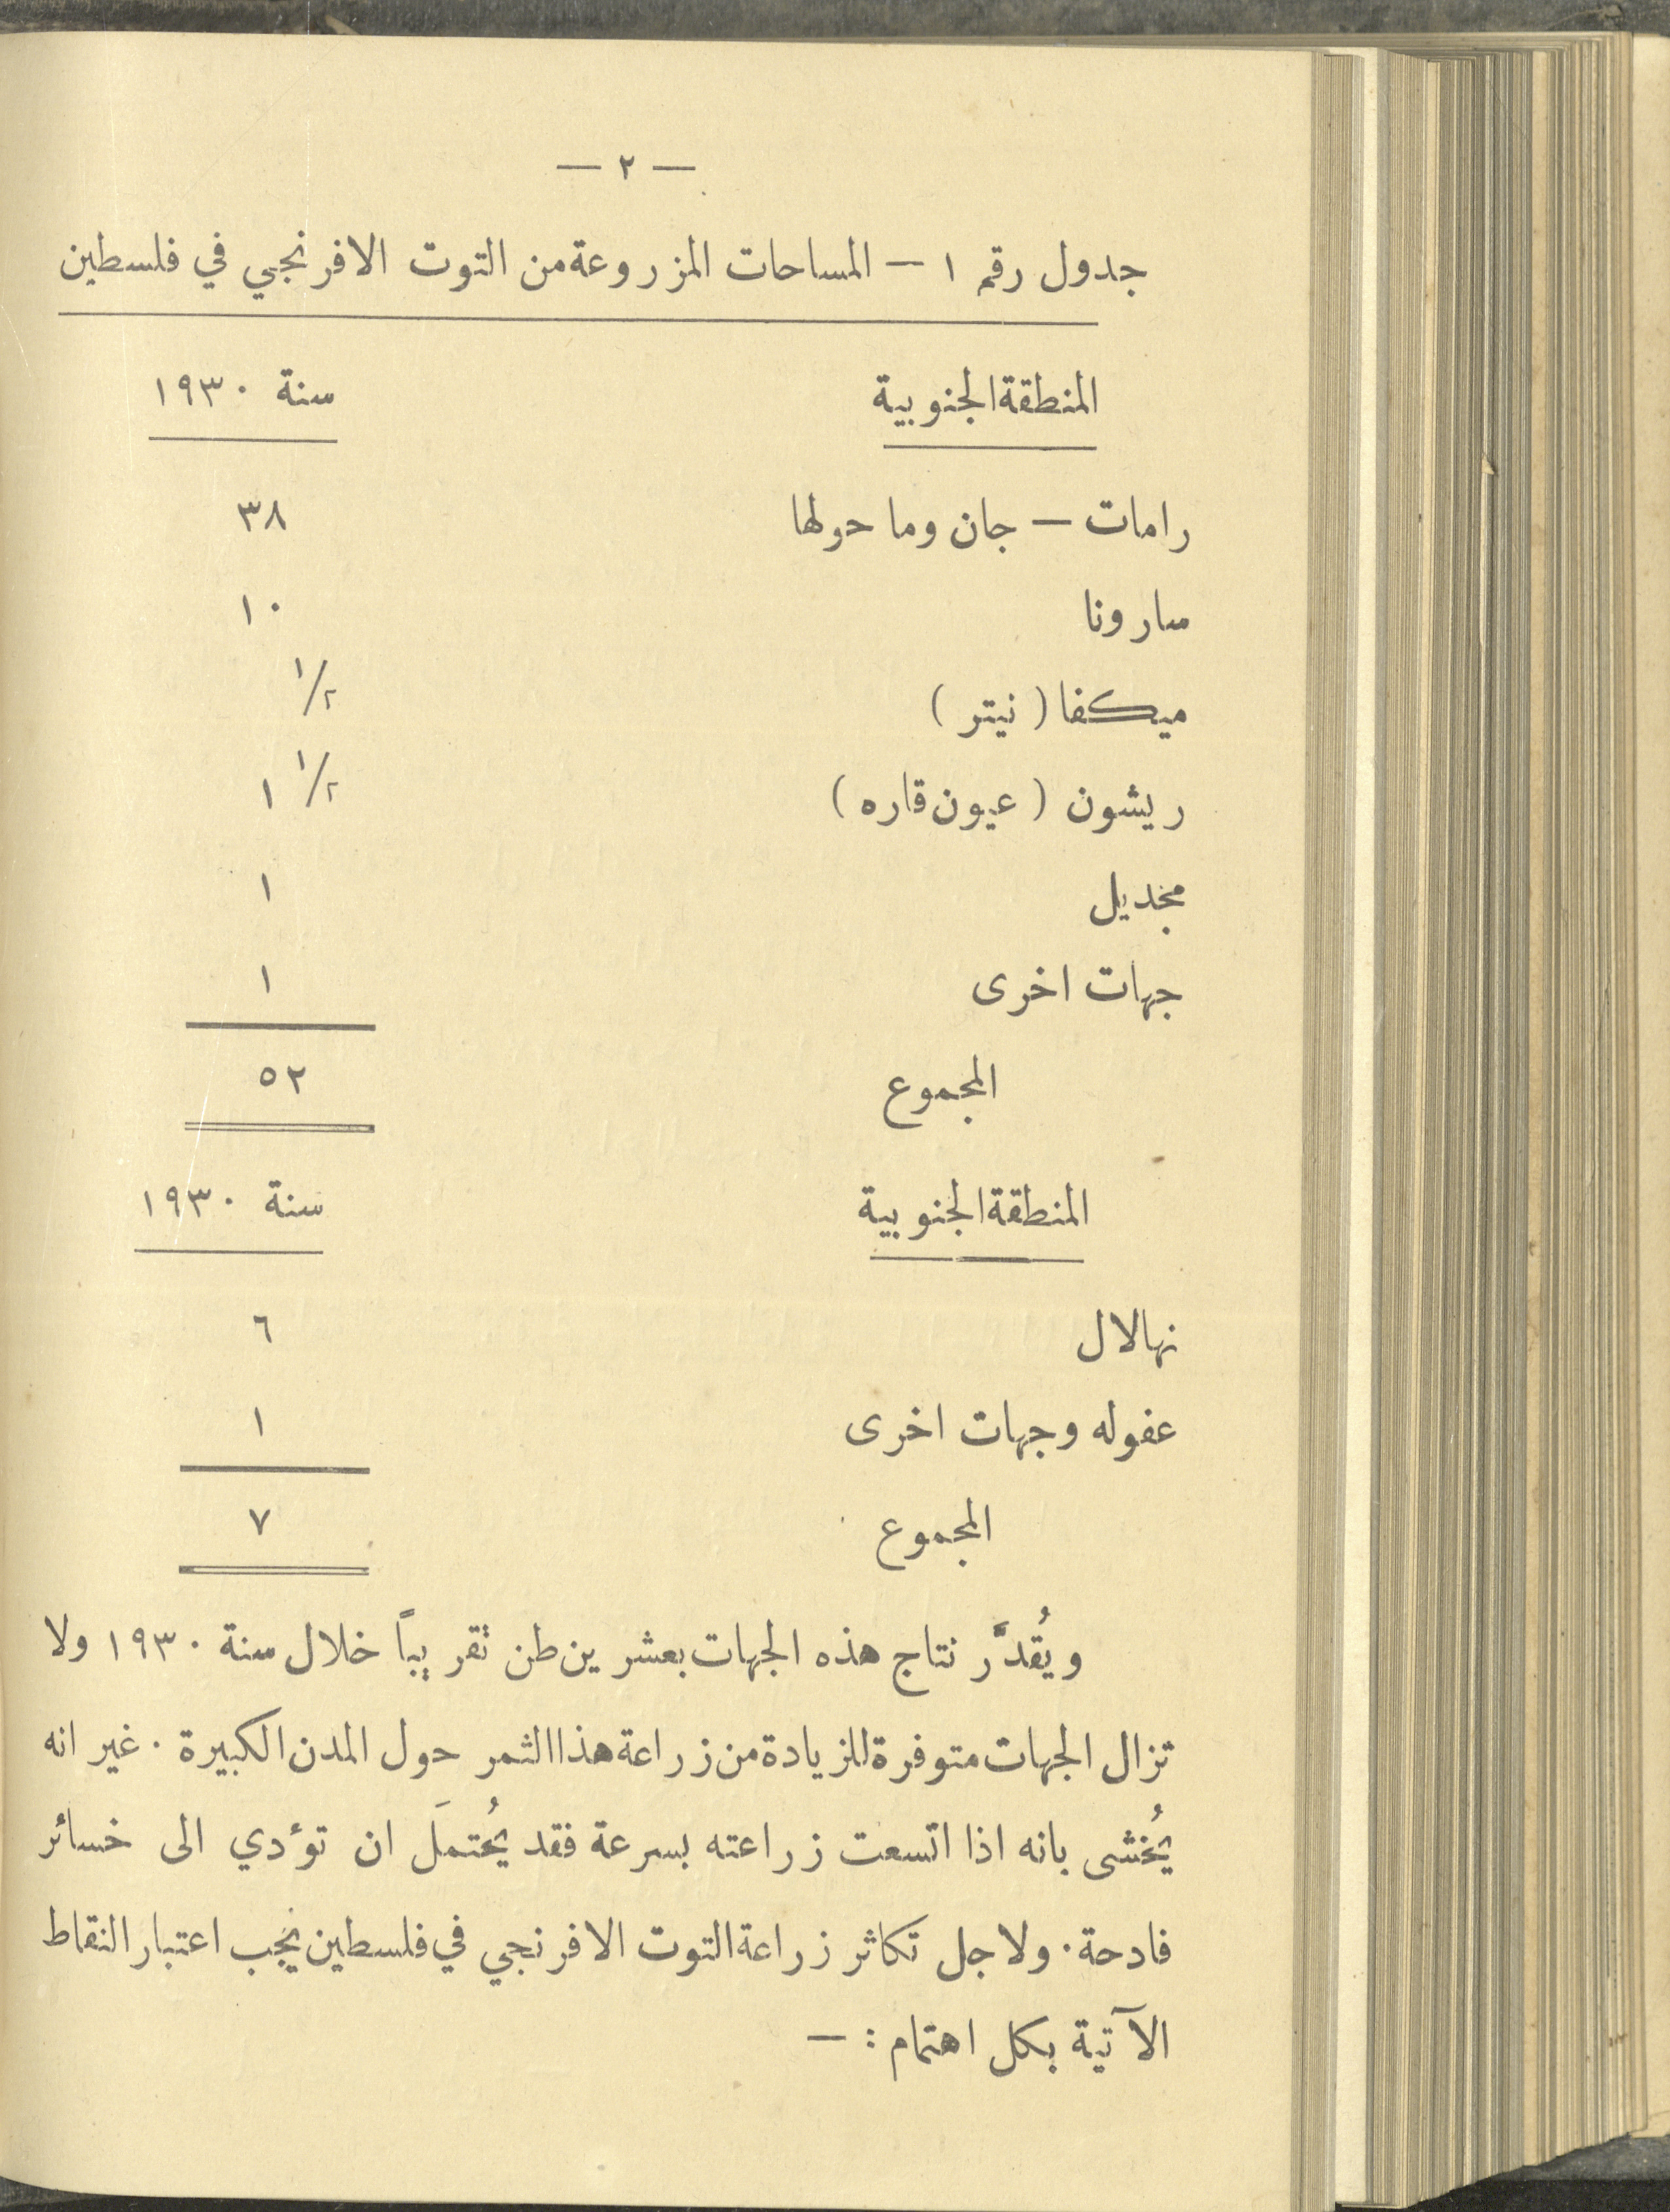 — ٢ —
جدول رقم ١ — المساحات المزروعة من التوت الافرنجي في فلسطين
المنطقة الجنوبية سنة ١٩٣٠
رامات — جان وما حولها ٣٨
سارونا ١٠
ميكفا ( نيتر ) ١/٢
ريشون ( عيون قاره ) ١ ١/٢
مجديل ١
جهات اخرى ١
المجموع ٥٢
المنطقة الجنوبية سنة ١٩٣٠
نهالال ٦
عفوله وجهات اخرى ١
المجموع ٧
ويُقدَّر نتاج هذه الجهات بعشرين طن تقريباً خلال سنة ١٩٣٠ ولا
تزال الجهات متوفرة للزيادة من زراعة هذا الثمر حول المدن الكبيرة . غير انه
يُخشى بانه اذا اتسعت زراعته بسرعة فقد يُحتمَل ان تؤدي الى خسائر
فادحة . ولاجل تكاثر زراعة التوت الافرنجي في فلسطين يجب اعتبار النقاط
الآتية بكل اهتمام : —